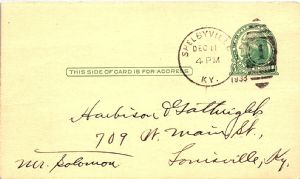 SHELBYVILLE
DEC 11
4 PM
KY.
1933
THIS SIDE OF CARD IS FOR ADDRESS
Harbison & Gathright
709 W. Main St,
Mr. Solomon
Louisville, Ky.